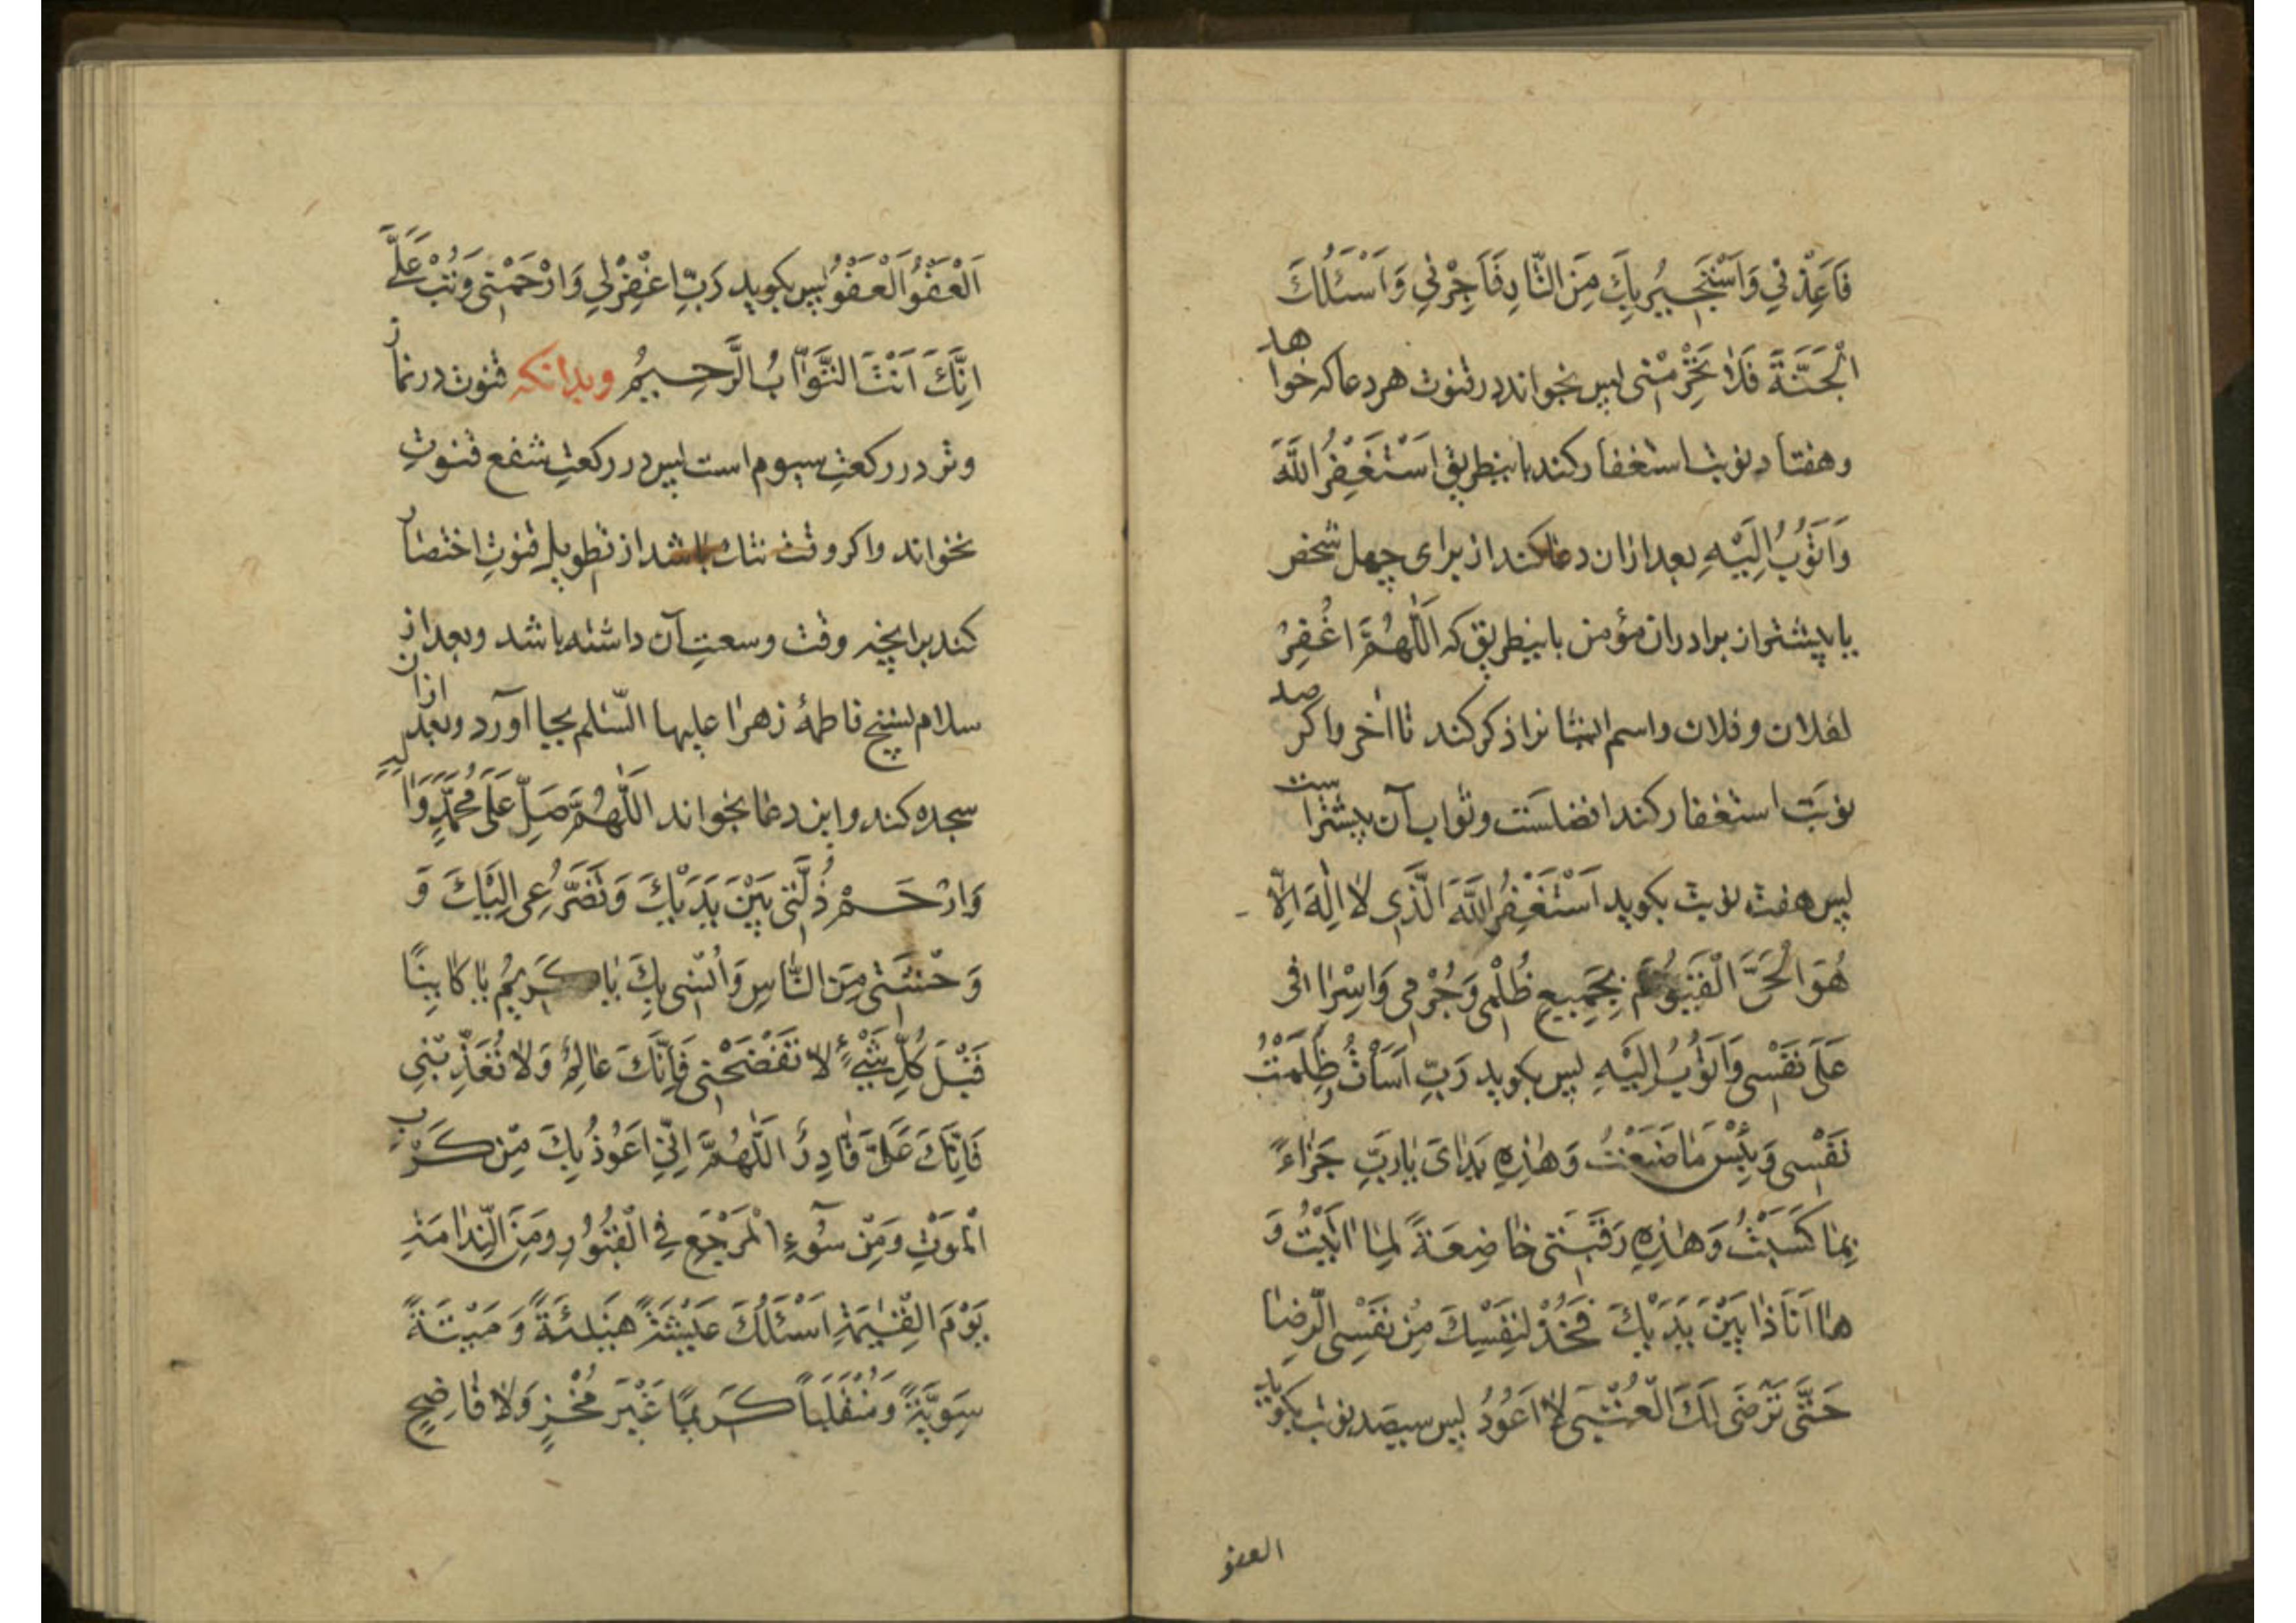 فَاَعِذْنِي وَاَسْتَجِيرُ بِكَ مِنَ النَّارِ فَاَجِرْنِي وَاَسْئَلُكَ
الْجَنَّةَ فَلَا تَحْرِمْنِي پس بخواند در قنوت هر دعا که خواهد
وهفتاد نوبت استغفار کند باینطریق اَسْتَغْفِرُ اللّٰهَ
وَاَتُوبُ اِلَيْهِ بعد ازان دعا کند از برای چهل شخص
یا بیشتر از برادران مؤمن باینطریق که اَللّٰهُمَّ اغْفِرْ
لفلان و فلان واسم ایشانرا ذکر کند تا آخر واکر صد
نوبَت استغفار کند افضلسَت وثواب آن بیشتراست
پس هفت نوبت بکوید اَسْتَغْفِرُ اللّٰهَ الَّذِي لَا اِلٰهَ اِلَّا
هُوَ الْحَىَّ الْقَيُّومَ بِجَمِيعِ ظُلْمِي وَجُرْمِي وَاِسْرَافِي
عَلَى نَفْسِي وَاَتُوبُ اِلَيْهِ پس بکوید رَبِّ اَسَاْتُ وَظَلَمْتُ
نَفْسِي وَبِئْسَ مَا صَنَعْتُ وَهٰذِهِ يَدَاىَ يَا رَبِّ جَزَاءً
بِمَا كَسَبْتُ وَهٰذِهِ رَقَبَتِي خَاضِعَةً لِمَا اَتَيْتُ وَ
هَا اَنَا ذَا بَيْنَ يَدَيْكَ فَخُذْ لِنَفْسِكَ مِنْ نَفْسِي الرِّضَا
حَتَّى تَرْضَى لَكَ الْعُتْبَى لَا اَعُودُ پس سیصد نوبت بکوید
العفو
اَلْعَفْوُ اَلْعَفْوُ پس بکوید رَبِّ اغْفِرْ لِي وَارْحَمْنِي وَتُبْ عَلَىَّ
اِنَّكَ اَنْتَ التَّوَّابُ الرَّحِيمُ وبدانکه قنوت در نماز
وتر در رکعتِ سیوم است پس در رکعتِ شفع قنوت
نخواند واکر وقت تنك باشد از تطویل قنوتِ اختصار
کند برانچه وقت وسعتِ آن داشته باشد وبعد از
سلام تسبیح فاطمهٔ زهرا علیها السّلم بجا آورد وبعد ازان
سجده کند و این دعا بخواند اَللّٰهُمَّ صَلِّ عَلَى مُحَمَّدٍ وَاٰلِهِ
وَارْحَمْ ذُلِّي بَيْنَ يَدَيْكَ وَتَضَرُّعِي اِلَيْكَ وَ
وَحْشَتِي مِنَ النَّاسِ وَاُنْسِي بِكَ يَا كَرِيمُ يَا كَايِنًا
قَبْلَ كُلِّ شَيْءٍ لَا تَفْضَحْنِي فَاِنَّكَ عَالِمٌ وَلَا تُعَذِّبْنِي
فَاِنَّكَ عَلَىَّ قَادِرٌ اَللّٰهُمَّ اِنِّي اَعُوذُ بِكَ مِنْ كَرْبِ
الْمَوْتِ وَمِنْ سُوۤءِ الْمَرْجَعِ فِي الْقُبُورِ وَمِنَ النِّدَامَةِ
يَوْمَ الْقِيٰمَةِ اَسْئَلُكَ عَيْشَةً هَنِيئَةً وَ مَيْتَةً
سَوِيَّةً وَمُنْقَلَباً كَرِيمًا غَيْرَ مُخْزٍ وَلَا فَاضِحٍ